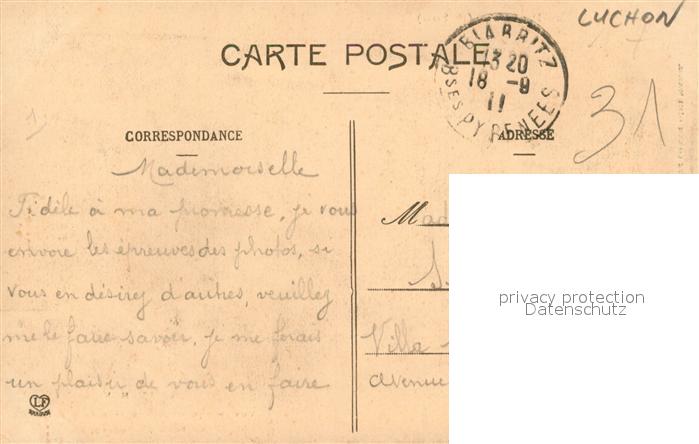 LUCHON
CARTE POSTALE
BIARRITZ
13 20
18 -9
11
BSES PYRENEES
31
CORRESPONDANCE
ADRESSE
Mademoiselle
Fidèle à ma promesse, je vous
envoie les épreuves des photos, si
vous en désirez d'autres, veuillez
me le faire savoir, je me ferais
un plaisir de vous en faire
Mad
Villa
avenue
privacy protection
Datenschutz
LF